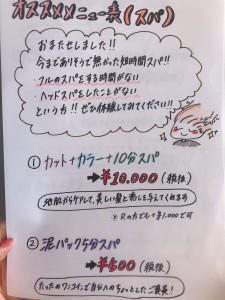 オススメメニュー表(スパ)
おまたせしました!!
今までありそうで無かった短時間スパ!!
・フルのスパをする時間がない
・ヘッドスパをしたことがない
という方!! ぜひ体験してみてください!!
① カット+カラー+10分スパ
➔¥10,000 (税抜)
地肌からケアして、美しい髪と癒しを与えてくれます
※Rの方でも+¥1,000で可
② 泥パック5分スパ
➔¥500 (税抜)
たったのワンコインで自分へのちょっとしたご褒美!